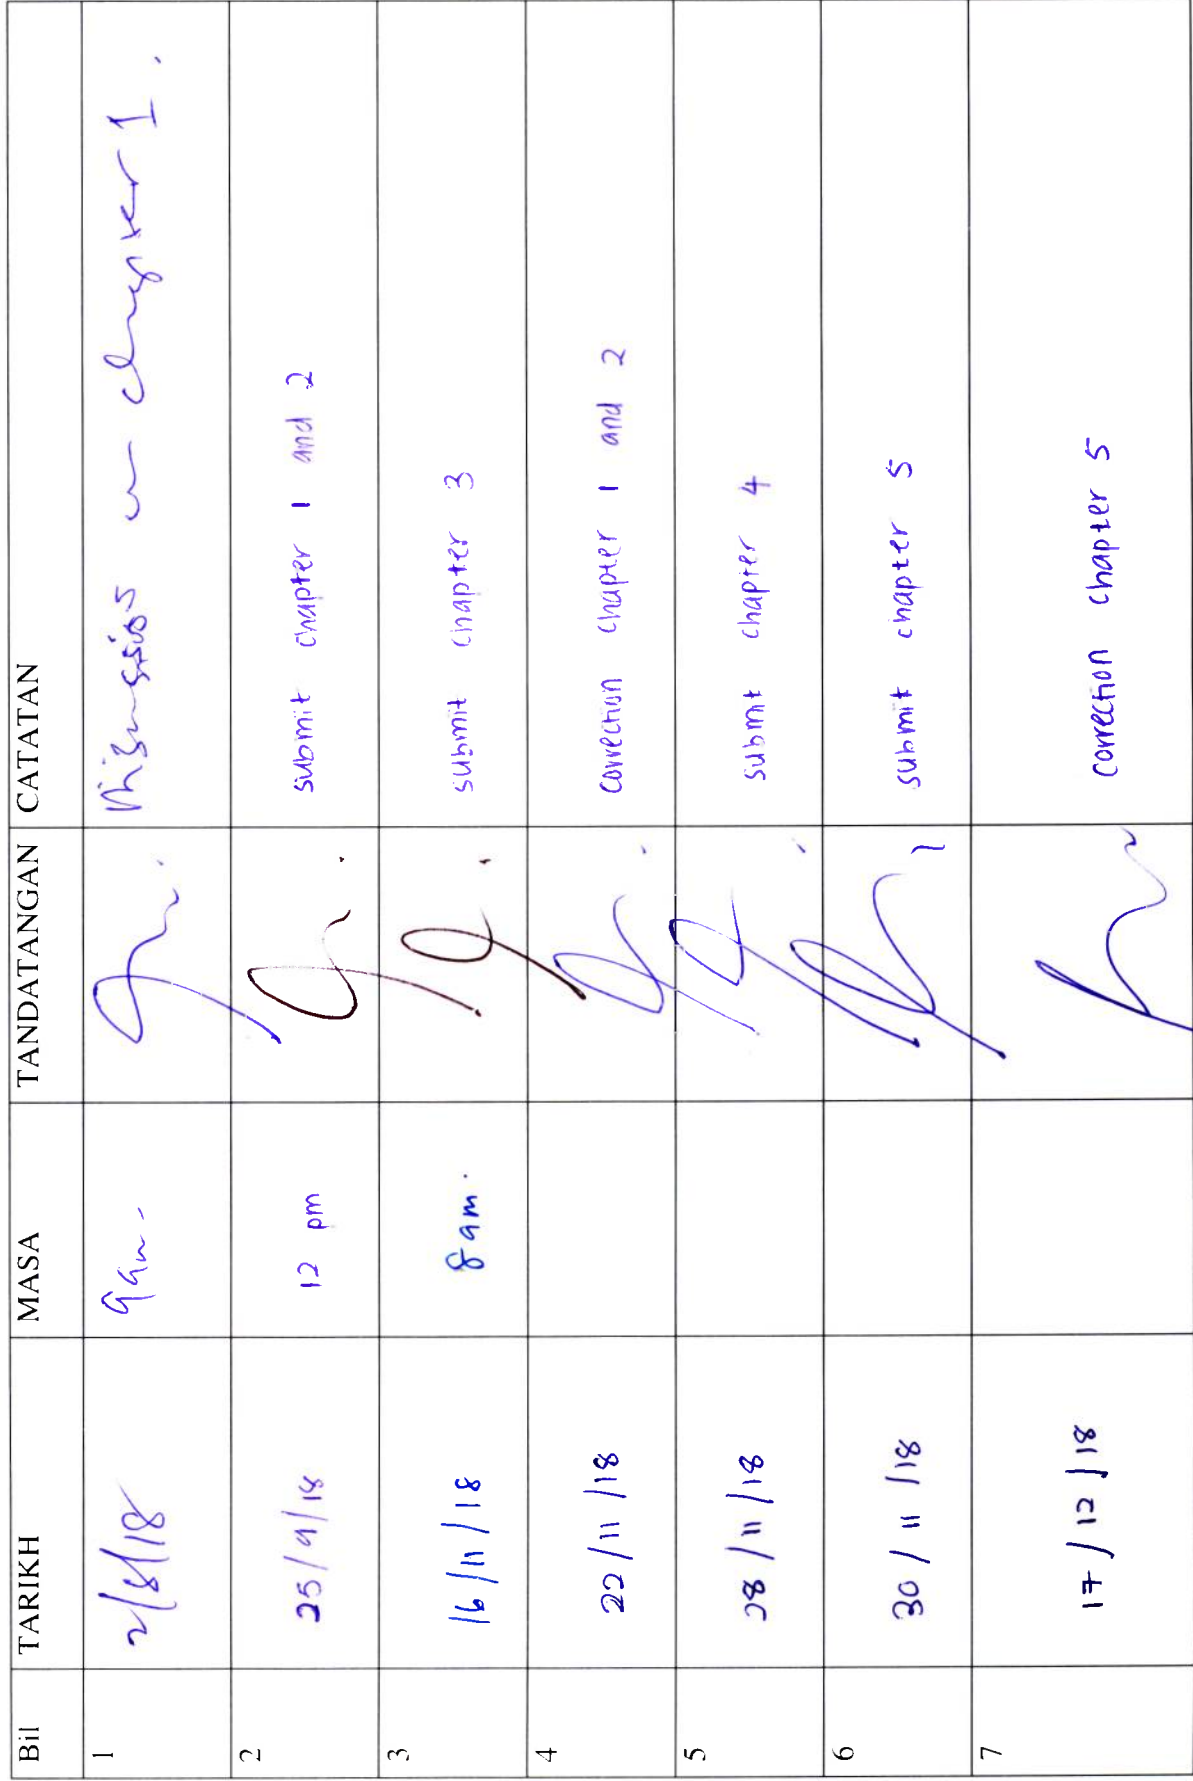 Bil TARIKH MASA TANDATANGAN CATATAN
1 2/8/18 9am. Discussion on chapter 1.
2 25/9/18 12 pm submit chapter 1 and 2
3 16/11/18 8am. submit chapter 3
4 22/11/18 correction chapter 1 and 2
5 28/11/18 submit chapter 4
6 30/11/18 submit chapter 5
7 17/12/18 correction chapter 5